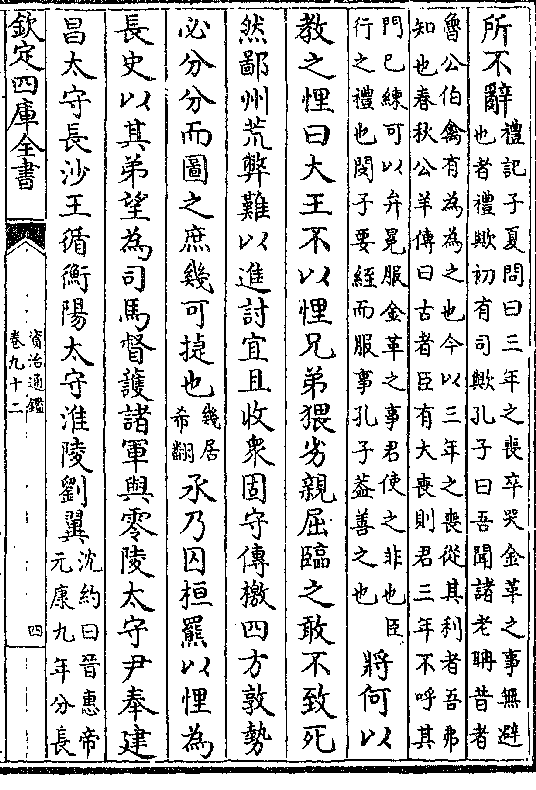 所不辭
禮記子夏問曰三年之喪卒哭金革之事無避
也者禮歟初有司歟孔子曰吾聞諸老聃昔者
魯公伯禽有為為之也今以三年之喪從其利者吾弗
知也春秋公羊傳曰古者臣有大喪則君三年不呼其
門已練可以弁冕服金革之事君使之非也臣
行之禮也閔子要絰而服事孔子蓋善之也
將何以
教之悝曰大王不以悝兄弟猥劣親屈臨之敢不致死
然鄙州荒弊難以進討宜且收衆固守傳檄四方敦勢
必分分而圖之庶幾可捷也
幾居
希翻
氶乃囚桓羆以悝為
長史以其弟望為司馬督護諸軍與零陵太守尹奉建
昌太守長沙王循衡陽太守淮陵劉翼
沈約曰晉惠帝
元康九年分長
欽定四庫全書
資治通鑑
卷九十二
四